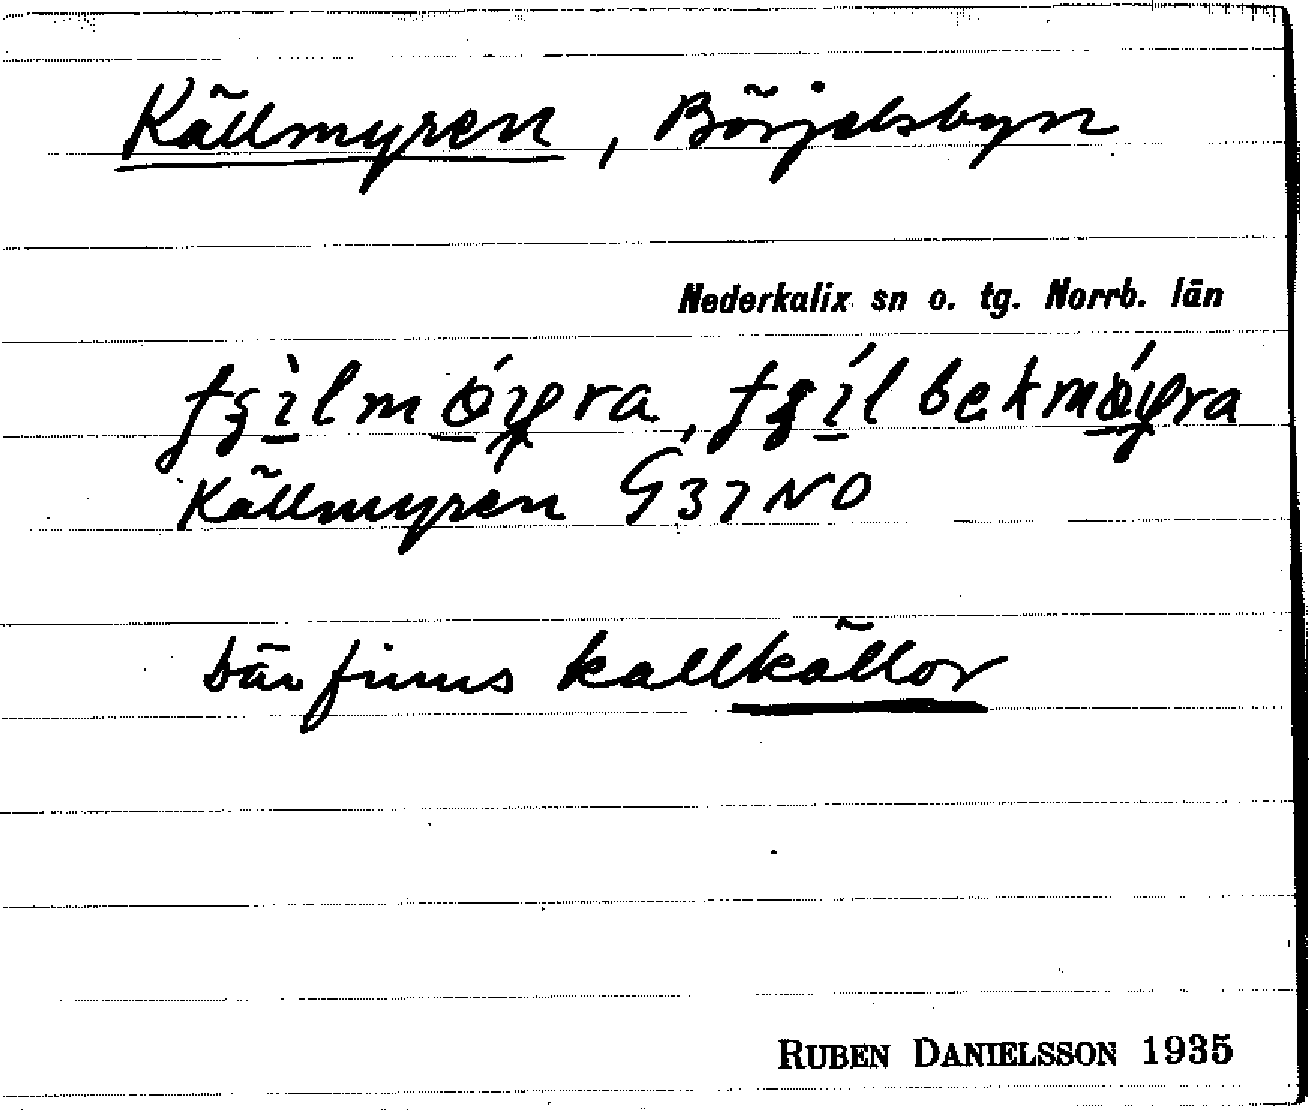 Källmyren, Börjelsbyn
Nederkalix sn o. tg. Norrb. län
Källmyren G37NO
där finns kallkällor
RUBEN DANIELSSON 1935